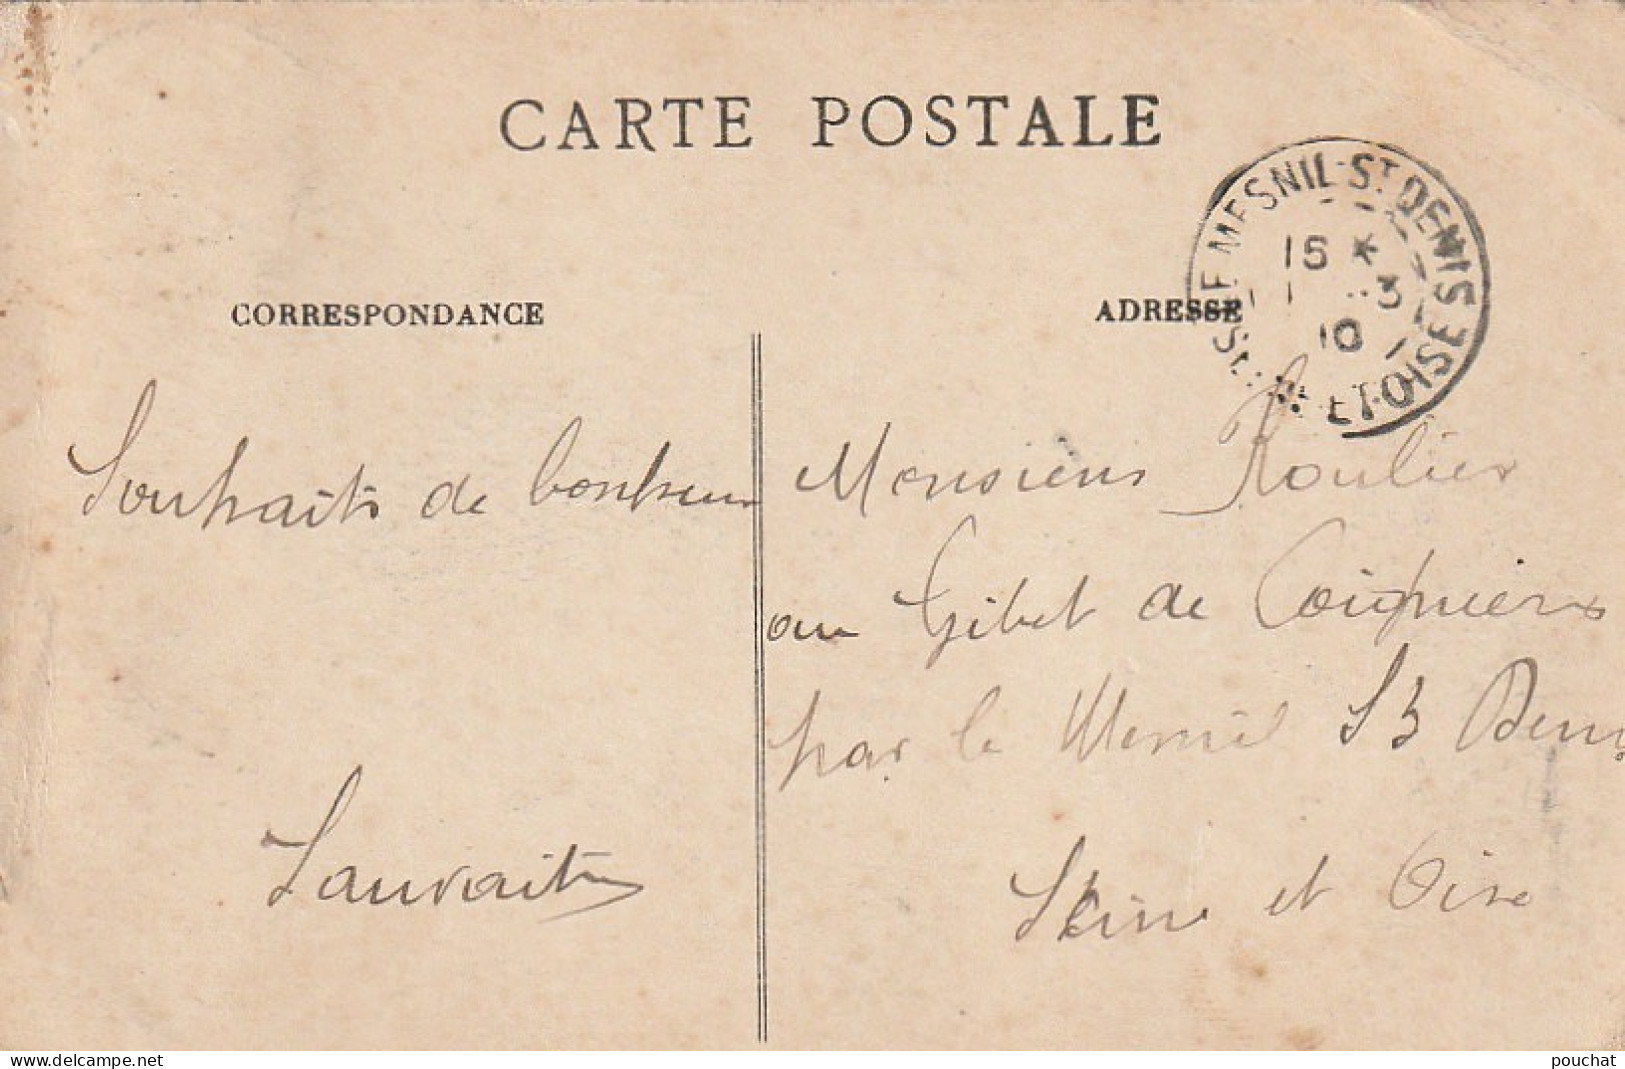 CARTE POSTALE
LE MESNIL-ST DENIS
SEINE-ET-OISE
15 *
1 3
10
CORRESPONDANCE
ADRESSE
Souhaits de bonheur
Monsieur Roulier
au Gibet de Coignières
par le Mesnil St Denis
Seine et Oise
www.delcampe.net
pouchat